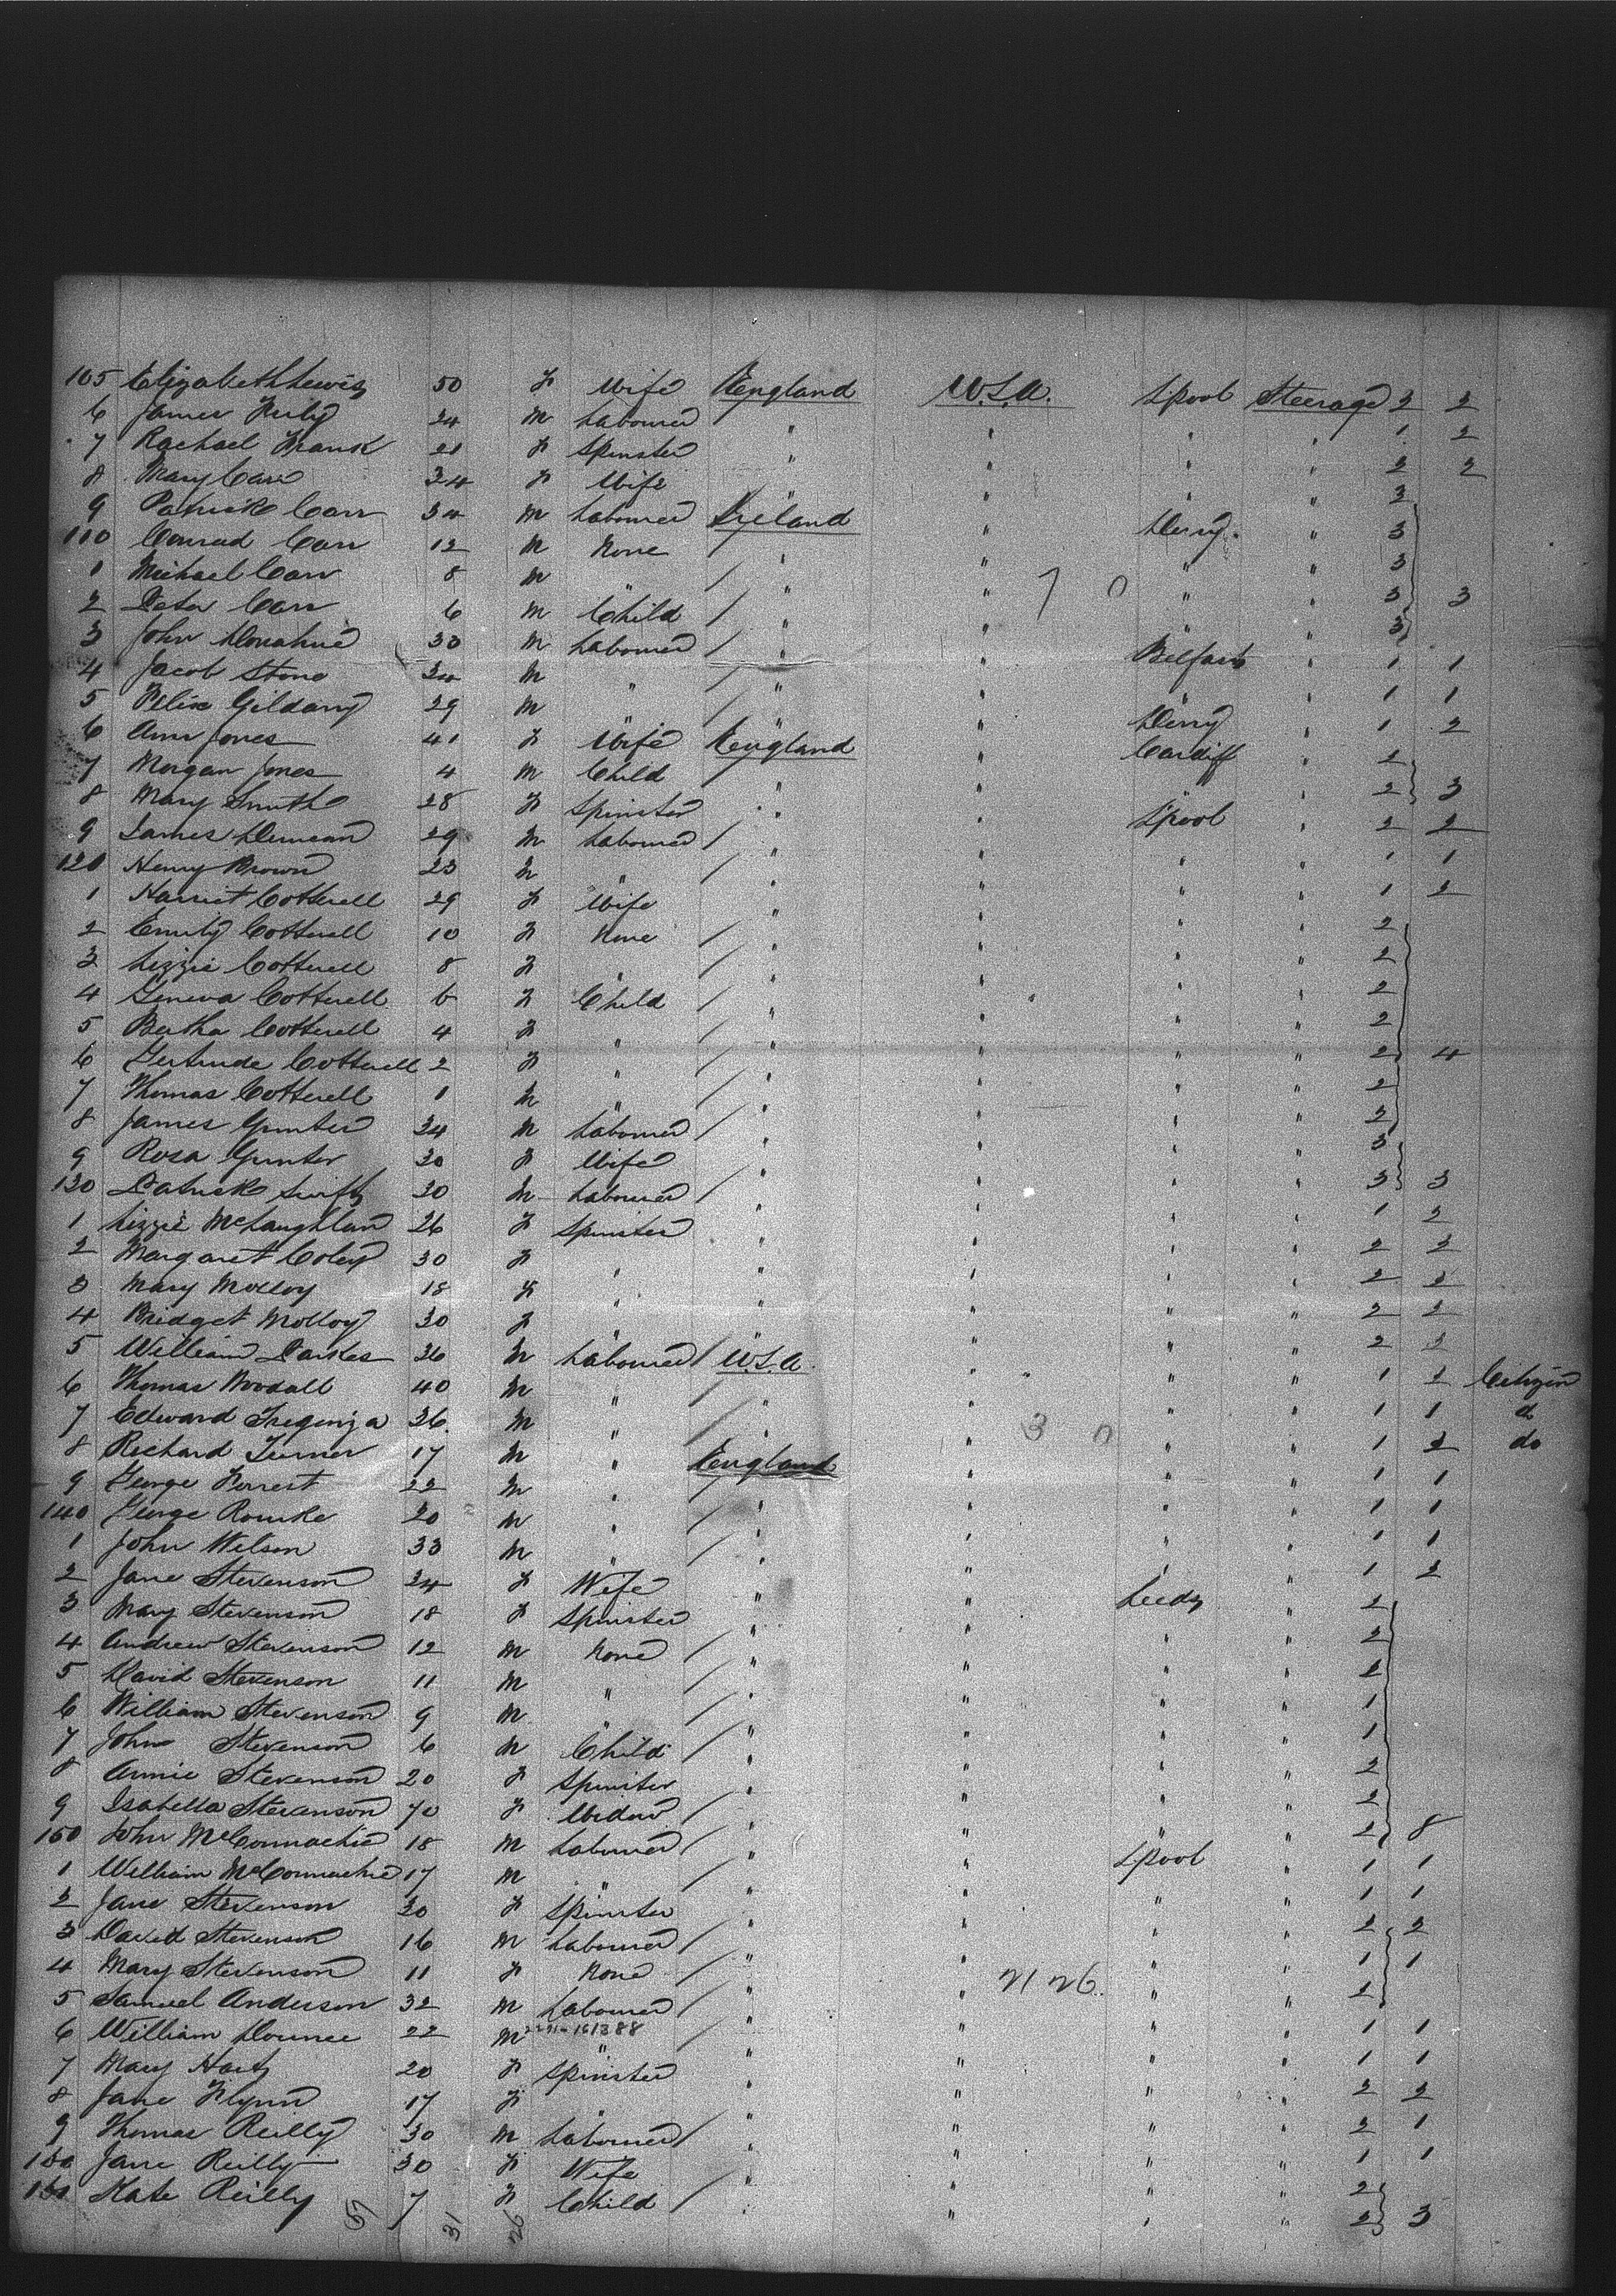 105 Elizabeth Lewis 50 F Wife England U.S.A. Lpool Steerage 2 2
6 James 24 M Labourer " " " " 1 2
7 Rachael Frank 21 F Spinster " " " " 2 2
8 Mary Carr 34 F Wife " " " " 3
9 Patrick Carr 34 M Labourer Ireland " Derry " 3
110 Conrad Carr 12 M None / " " " " 3
1 Michael Carr 8 M " / " " " " 3 3
2 Peter Carr 6 M Child / " " " " 3
3 John Donahue 30 M Labourer / " " Belfast " 1 1
4 Jacob Stone 34 M " / " " " " 1 1
5 Felix Gildany 29 M " / " " Derry " 1 2
6 Ann Jones 41 F Wife England " Cardiff " 2
7 Morgan Jones 4 M Child / " " " " 2 3
8 Mary Smith 28 F Spinster " " Lpool " 2 2
9 James Duncan 29 M Labourer / " " " " 1 1
120 Henry Brown 23 M " / " " " " 1 2
1 Harriet Cotterell 29 F Wife " " " " 2
2 Emily Cotterell 10 F None / " " " " 2
3 Lizzie Cotterell 8 F " / " " " " 2
4 Geneva Cotterell 6 F Child / " " " " 2
5 Bertha Cotterell 4 F " / " " " " 2 4
6 Gertrude Cotterell 2 F " / " " " " 2
7 Thomas Cotterell 1 M " / " " " " 2
8 James Gunter 34 M Labourer / " " " " 3
9 Rosa Gunter 30 F Wife " " " " 3 3
130 Patrick Swift 30 M Labourer / " " " " 1 2
1 Lizzie McLaughlan 26 F Spinster " " " " 2 2
2 Margaret Coley 30 F " " " " " 2 2
3 Mary Molloy 18 F " " " " " 2 2
4 Bridget Molloy 30 F " " " " " 2 2
5 William Parkes 36 M Labourer / U.S.A. " " " 1 1 Citizen
6 Thomas Woodall 40 M " / " " " " 1 1 do
7 Edward Tregenza 36 M " / " " " " 1 2 do
8 Richard Turner 17 M " England " " " 1 1
9 George Forrest 22 M " / " " " " 1 1
140 George Rourke 20 M " / " " " " 1 1
1 John Wilson 33 M " / " " " " 1 2
2 Jane Stevenson 34 F Wife " " Leeds " 2
3 Mary Stevenson 18 F Spinster " " " " 2
4 Andrew Stevenson 12 M None / " " " " 1
5 David Stevenson 11 M " / " " " " 1
6 William Stevenson 9 M " / " " " " 1
7 John Stevenson 6 M Child / " " " " 2
8 Annie Stevenson 20 F Spinster " " " " 2
9 Isabella Stevenson 70 F Widow / " " " " 2 8
150 John McConnachie 18 M Labourer / " " Lpool " 1 1
1 William McConnachie 17 M " / " " " " 1 1
2 Jane Stevenson 30 F Spinster " " " " 2 2
3 David Stevenson 16 M Labourer / " " " " 1 1
4 Mary Stevenson 11 F None / " " " " 2
5 Samuel Anderson 32 M Labourer / " " " " 1 1
6 William 22 M " / " " " " 1 1
7 Mary Hart 20 F Spinster " " " " 2 2
8 Jane Flynn 17 F " " " " " 2 1
9 Thomas Reilly 30 M Labourer / " " " " 1 1
160 Jane Reilly 30 F Wife " " " " 2
161 Kate Reilly 7 F Child / " " " " 2 3
57 31 26